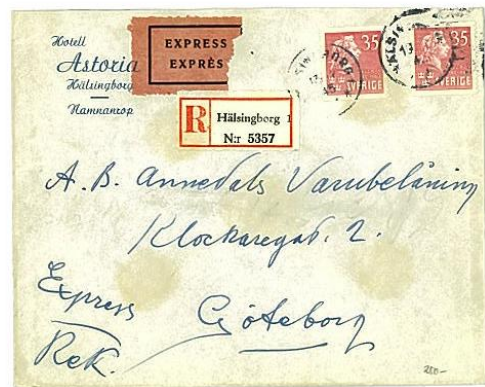 Hotell
Astoria
Hälsingborg
Namnanrop
EXPRESS
EXPRÈS
R
Hälsingborg 1
N:r 5357
35
SVERIGE
35
SVERIGE
A.B. Annedals Varubelåning
Klockaregat. 2.
Göteborg
Express
Rek.
250-